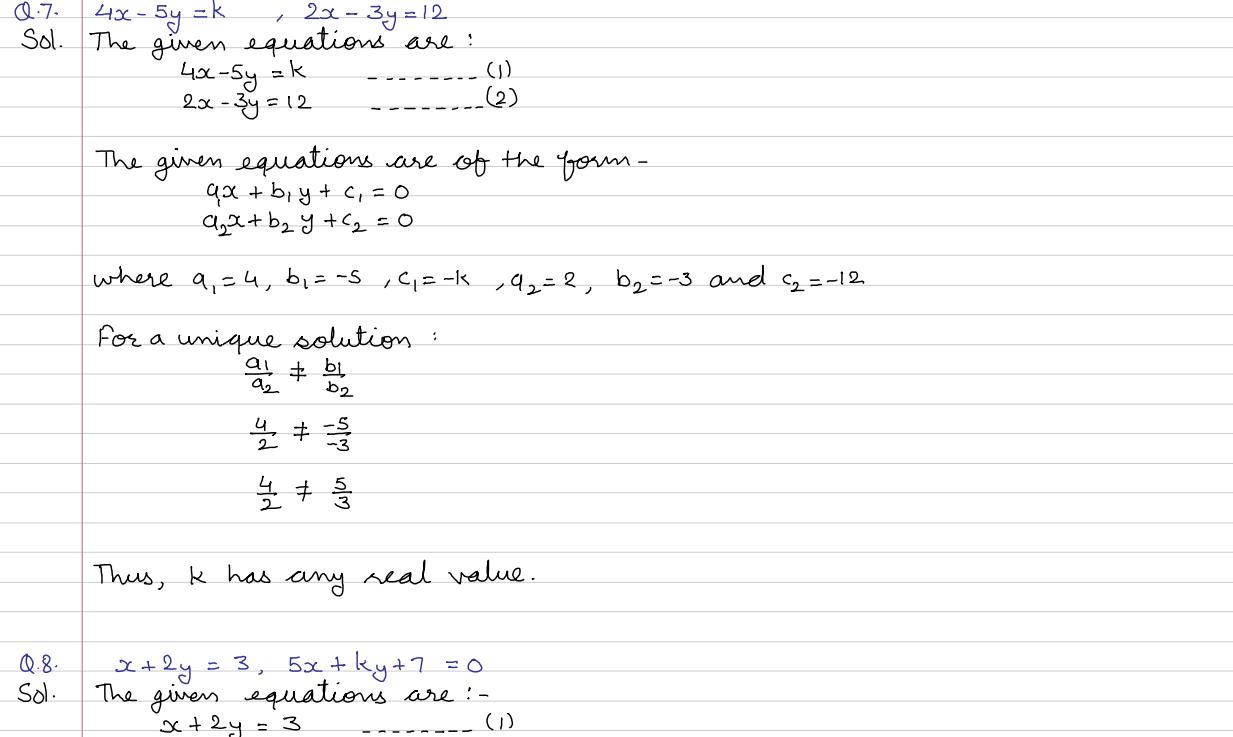 Q.7. 4x - 5y = k , 2x - 3y = 12
Sol. The given equations are :
4x - 5y = k -------- (1)
2x - 3y = 12 -------- (2)
The given equations are of the form -
a₁x + b₁y + c₁ = 0
a₂x + b₂y + c₂ = 0
where a₁ = 4, b₁ = -5 , c₁ = -k , a₂ = 2, b₂ = -3 and c₂ = -12
For a unique solution :
a₁/a₂ ≠ b₁/b₂
4/2 ≠ -5/-3
4/2 ≠ 5/3
Thus, k has any real value.
Q.8. x + 2y = 3, 5x + ky + 7 = 0
Sol. The given equations are :-
x + 2y = 3 -------- (1)